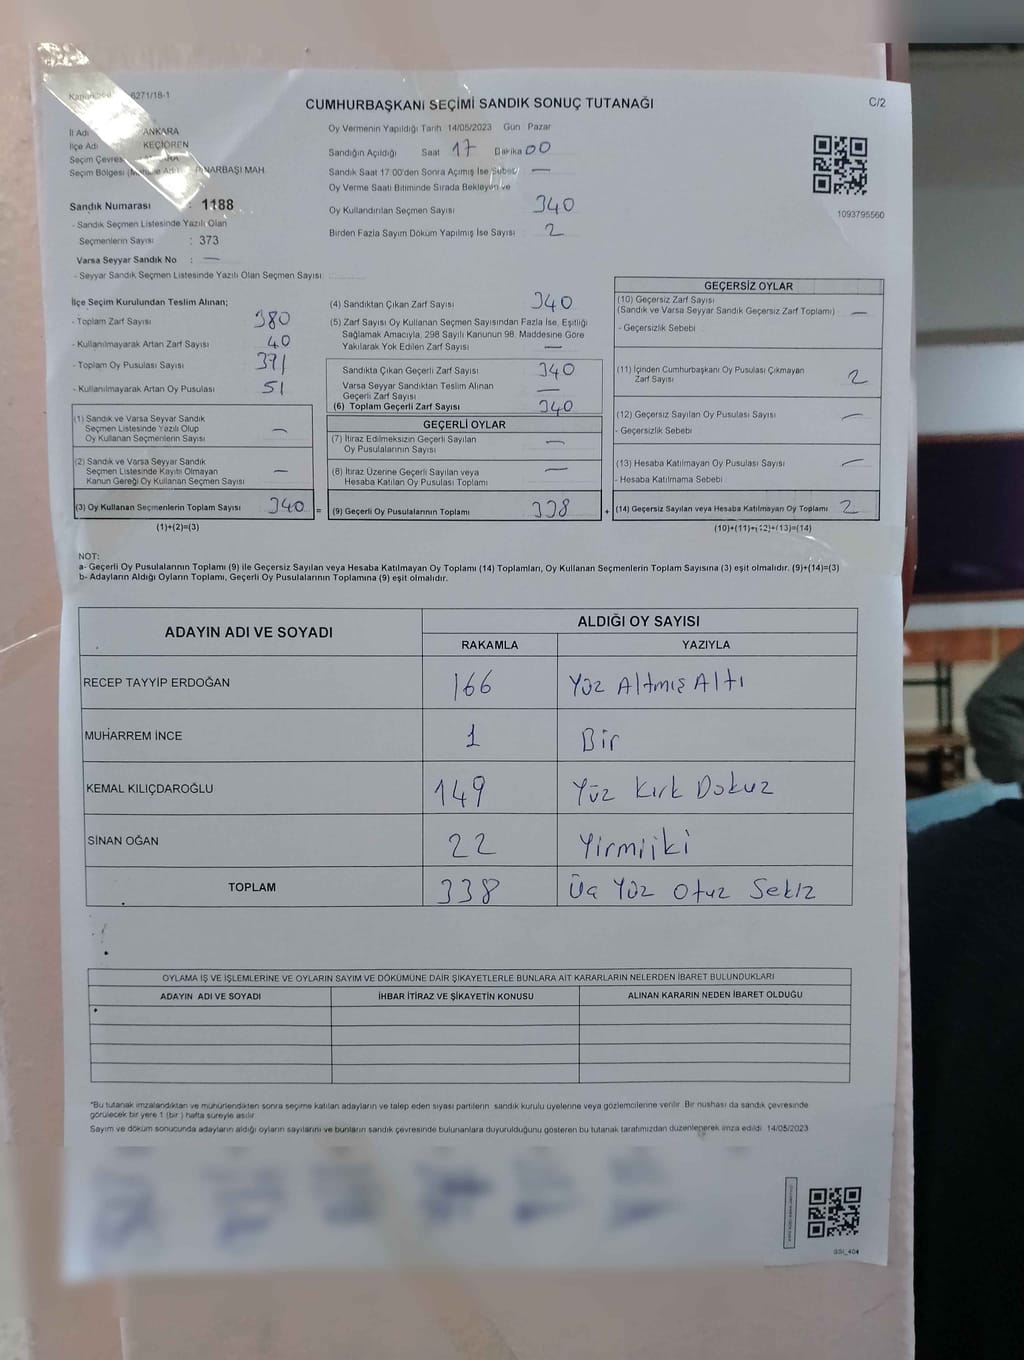 6271/18-1
CUMHURBAŞKANI SEÇİMİ SANDIK SONUÇ TUTANAĞI
C/2
İl Adı ANKARA
İlçe Adı KEÇİÖREN
Seçim Çevres
Seçim Bölgesi PINARBAŞI MAH.
Sandık Numarası : 1188
- Sandık Seçmen Listesinde Yazılı Olan
Seçmenlerin Sayısı : 373
Varsa Seyyar Sandık No : —
- Seyyar Sandık Seçmen Listesinde Yazılı Olan Seçmen Sayısı
Oy Vermenin Yapıldığı Tarih 14/05/2023 Gün Pazar
Sandığın Açıldığı Saat 17 Dakika 00
Sandık Saat 17 00'den Sonra Açımış İse Sebebi —
Oy Verme Saati Bitiminde Sırada Bekleyen ve
Oy Kullandırılan Seçmen Sayısı 340
Birden Fazla Sayım Döküm Yapılmış İse Sayısı 2
1093795560
İlçe Seçim Kurulundan Teslim Alınan;
- Toplam Zarf Sayısı 380
- Kullanılmayarak Artan Zarf Sayısı 40
- Toplam Oy Pusulası Sayısı 391
- Kullanılmayarak Artan Oy Pusulası 51
(1) Sandık ve Varsa Seyyar Sandık
Seçmen Listesinde Yazılı Olup
Oy Kullanan Seçmenlerin Sayısı —
(2) Sandık ve Varsa Seyyar Sandık
Seçmen Listesinde Kayıtlı Olmayan
Kanun Gereği Oy Kullanan Seçmen Sayısı —
(3) Oy Kullanan Seçmenlerin Toplam Sayısı 340 =
(1)+(2)=(3)
(4) Sandıktan Çıkan Zarf Sayısı 340
(5) Zarf Sayısı Oy Kullanan Seçmen Sayısından Fazla İse, Eşitliği
Sağlamak Amacıyla, 298 Sayılı Kanunun 98. Maddesine Göre
Yakılarak Yok Edilen Zarf Sayısı —
Sandıkta Çıkan Geçerli Zarf Sayısı 340
Varsa Seyyar Sandıktan Teslim Alınan
Geçerli Zarf Sayısı —
(6) Toplam Geçerli Zarf Sayısı 340
GEÇERLİ OYLAR
(7) İtiraz Edilmeksizin Geçerli Sayılan
Oy Pusulalarının Sayısı —
(8) İtiraz Üzerine Geçerli Sayılan veya
Hesaba Katılan Oy Pusulası Toplamı —
(9) Geçerli Oy Pusulalarının Toplamı 338 +
GEÇERSİZ OYLAR
(10) Geçersiz Zarf Sayısı
(Sandık ve Varsa Seyyar Sandık Geçersiz Zarf Toplamı) —
- Geçersizlik Sebebi
(11) İçinden Cumhurbaşkanı Oy Pusulası Çıkmayan
Zarf Sayısı 2
(12) Geçersiz Sayılan Oy Pusulası Sayısı —
- Geçersizlik Sebebi
(13) Hesaba Katılmayan Oy Pusulası Sayısı —
- Hesaba Katılmama Sebebi
(14) Geçersiz Sayılan veya Hesaba Katılmayan Oy Toplamı 2
(10)+(11)+(12)+(13)=(14)
NOT:
a- Geçerli Oy Pusulalarının Toplamı (9) ile Geçersiz Sayılan veya Hesaba Katılmayan Oy Toplamı (14) Toplamları, Oy Kullanan Seçmenlerin Toplam Sayısına (3) eşit olmalıdır. (9)+(14)=(3)
b- Adayların Aldığı Oyların Toplamı, Geçerli Oy Pusulalarının Toplamına (9) eşit olmalıdır.
ADAYIN ADI VE SOYADI
ALDIĞI OY SAYISI
RAKAMLA YAZIYLA
RECEP TAYYİP ERDOĞAN 166 Yüz Altmış Altı
MUHARREM İNCE 1 Bir
KEMAL KILIÇDAROĞLU 149 Yüz Kırk Dokuz
SİNAN OĞAN 22 Yirmiiki
TOPLAM 338 Üç Yüz Otuz Sekiz
OYLAMA İŞ VE İŞLEMLERİNE VE OYLARIN SAYIM VE DÖKÜMÜNE DAİR ŞİKAYETLERLE BUNLARA AİT KARARLARIN NELERDEN İBARET BULUNDUKLARI
ADAYIN ADI VE SOYADI İHBAR İTİRAZ VE ŞİKAYETİN KONUSU ALINAN KARARIN NEDEN İBARET OLDUĞU
*Bu tutanak imzalandıktan ve mühürlendikten sonra seçime katılan adayların ve talep eden siyasi partilerin sandık kurulu üyelerine veya gözlemcilerine verilir. Bir nüshası da sandık çevresinde
görülecek bir yere 1 (bir) hafta süreyle asılır
Sayım ve döküm sonucunda adayların aldığı oyların sayılarını ve bunların sandık çevresinde bulunanlara duyurulduğunu gösteren bu tutanak tarafımızdan düzenlenerek imza edildi 14/05/2023